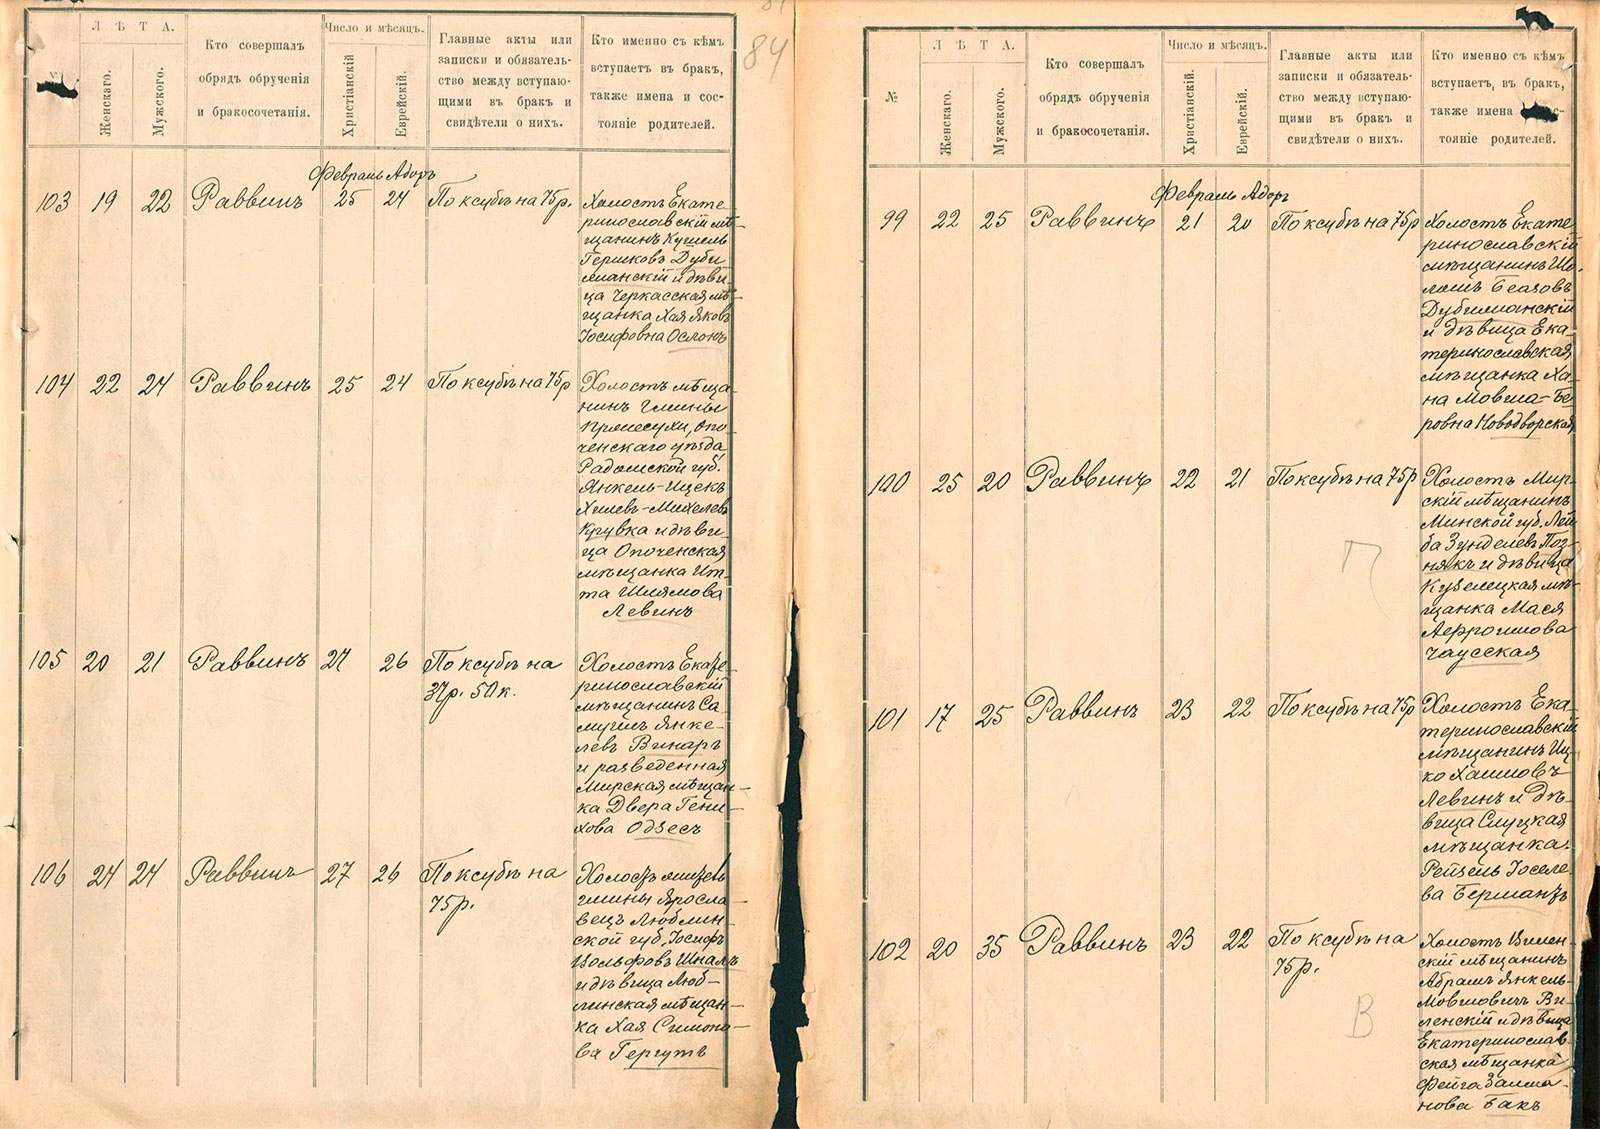 84
Л Ѣ Т А.
Женскаго.
Мужского.
Кто совершалъ
обрядъ обрученія
и бракосочетанія.
Число и мѣсяцъ.
Христіанскій
Еврейскій.
Главные акты или
записки и обязатель-
ство между вступаю-
щими въ бракъ и
свидѣтели о нихъ.
Кто именно съ кѣмъ
вступаетъ въ бракъ,
также имена и сос-
тояніе родителей.
Февраль Адоръ
103 19 22 Раввинъ 25 24 По ксубѣ на 75р.
Холостъ Екате-
ринославскій мѣ-
щанинъ Кушель
Гершковъ Дуби
манскій и дѣви-
ца Черкасская мѣ-
щанка Хая Яковъ
Іосифовна Ослонъ
104 22 24 Раввинъ 25 24 По ксубѣ на 75р
Холостъ мѣща-
нинъ гмины
Опо-
ченскаго уѣзда
Радомской губ.
Янкель-Ицекъ
Хилевъ-Михелевъ
Крувка и дѣви-
ца Опоченская
мѣщанка Ит-
та Шлямова
Левинъ
105 20 21 Раввинъ 27 26 По ксубѣ на
37р. 50к.
Холостъ Екате-
ринославскій
мѣщанинъ Са-
муилъ Янке-
левъ Винаръ
и разведенная
Мирская мѣщан-
ка Двера Гени-
хова Одзесъ
106 24 24 Раввинъ 27 26 По ксубѣ на
75р.
Холостъ житель
гмины Яросла-
вецъ Люблин-
ской губ. Іосифъ
Вольфовъ Шпалъ
и дѣвица Люб-
линская мѣщан-
ка Хая Симоно-
ва Гергутъ
№
Л Ѣ Т А.
Женскаго.
Мужского.
Кто совершалъ
обрядъ обрученія
и бракосочетанія.
Число и мѣсяцъ.
Христіанскій.
Еврейскій.
Главные акты или
записки и обязатель-
ство между вступаю-
щими въ бракъ и
свидѣтели о нихъ.
Кто именно съ кѣмъ
вступаетъ, въ бракъ,
также имена сос-
тояніе родителей.
Февраль Адоръ
99 22 25 Раввинъ 21 20 По ксубѣ на 75р
Холостъ Екате
ринославскій
мѣщанинъ Шо-
ломъ Беазовъ
Дубиманскій
и дѣвица Ека-
теринославская
мѣщанка Ха-
на Мовша-Бе
ровна Новодворская
100 25 20 Раввинъ 22 21 По ксубѣ на 75р
Холостъ Мир-
скій мѣщанинъ
Минской губ. Лей
ба Зунделевъ Поз-
някъ и дѣвица
Кубелецкая мѣ-
щанка Мася
Аефроимова
Чаусская
П
101 17 25 Раввинъ 23 22 По ксубѣ на 75р
Холостъ Ека-
теринославскій
мѣщанинъ Иц-
ко Хаимовъ
Левинъ и дѣ-
вица Слуцкая
мѣщанка
Рейзель Іоселе-
ва Берманъ
102 20 35 Раввинъ 23 22 По ксубѣ на
75р.
Холостъ Вилен-
скій мѣщанинъ
Абрамъ Янкель-
Мовшовичъ Ви-
ленскій и дѣвица
Екатеринослав-
ская мѣщанка
Фейга Залма-
нова Бакъ
В